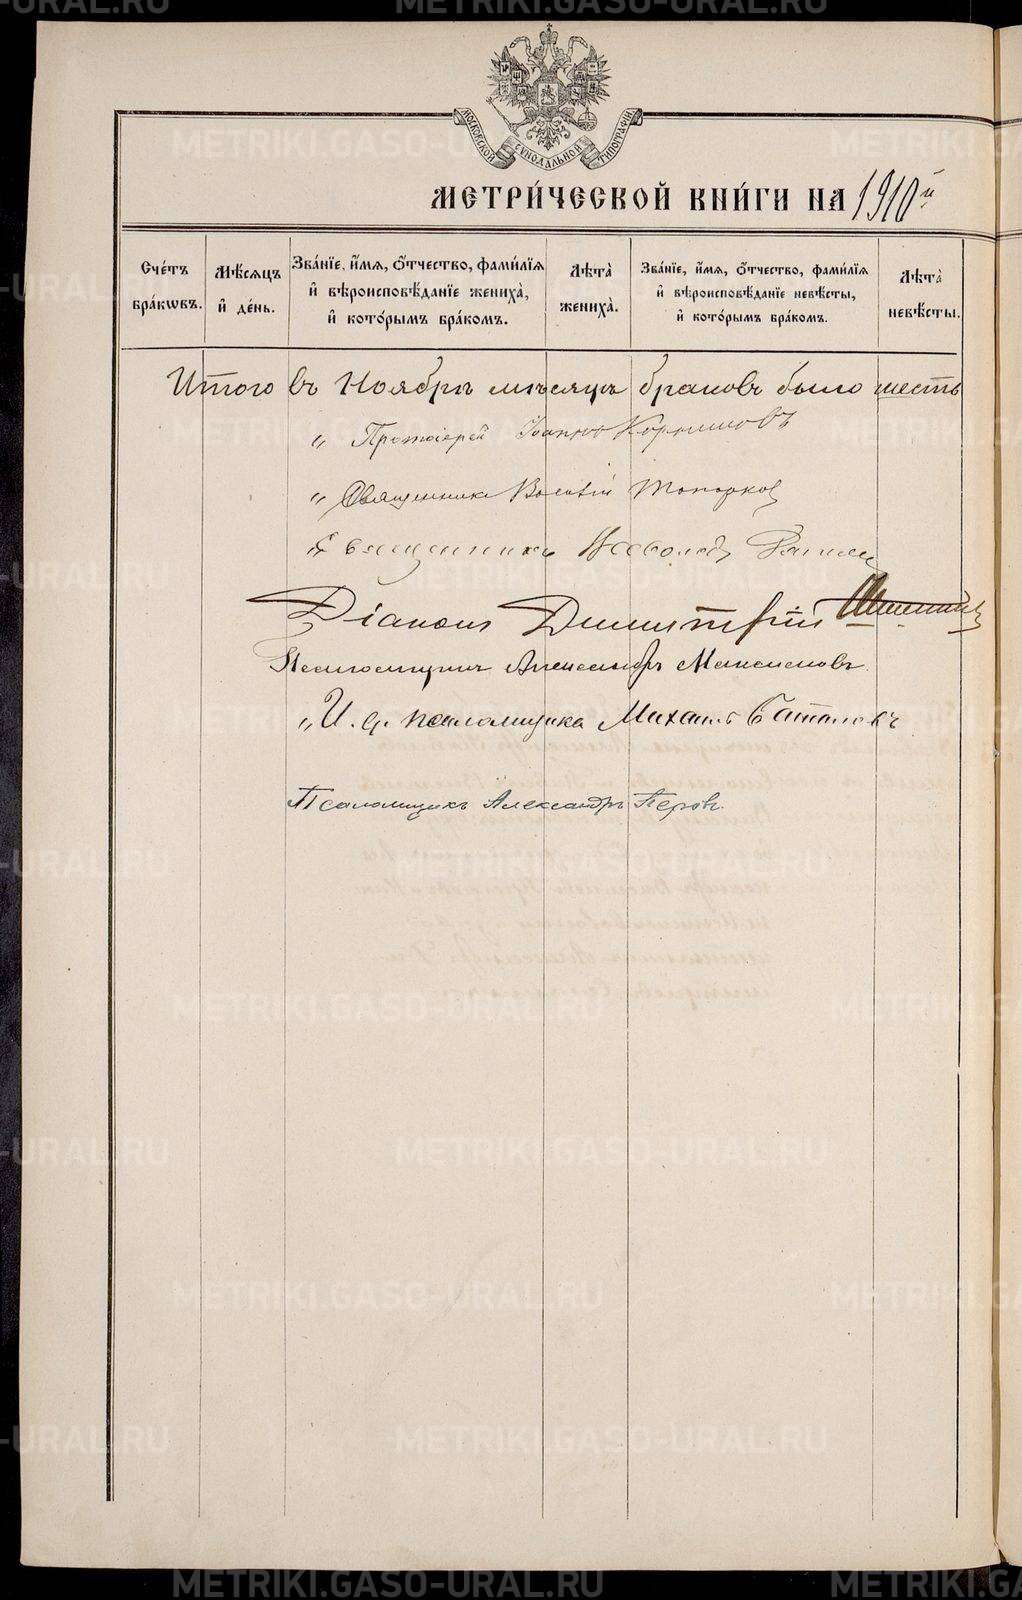 METRIKI.GASO-URAL.RU
МОСКОВСКОЙ СѴНОДАЛЬНОЙ ТИПОГРАФІИ
МЕТРИ́ЧЕСКОЙ КНИ́ГИ НА 1910 й
Сче́тъ бра́кωвъ.
Мѣ́сяцъ и҆ де́нь.
Зва́нїе, и҆́мя, ѻ҆́тчество, фами́лїя и҆ вѣроисповѣ́данїе жениха̀, и҆ кото́рымъ бра́комъ.
Лѣ́та жениха̀.
Зва́нїе, и҆́мя, ѻ҆́тчество, фами́лїя и҆ вѣроисповѣ́данїе невѣ́сты, и҆ кото́рымъ бра́комъ.
Лѣ́та невѣ́сты.
Итого въ Ноябрѣ мѣсяцѣ браковъ было шесть
„ Протоіерей Іоаннъ
„ Священникъ Топорков
„ Священникъ Всеволодъ
Діаконъ Димитрій
Псаломщикъ Александръ Максимовъ.
„ И. д. псаломщика Михаилъ Баталовъ
Псаломщикъ Александръ Перовъ.